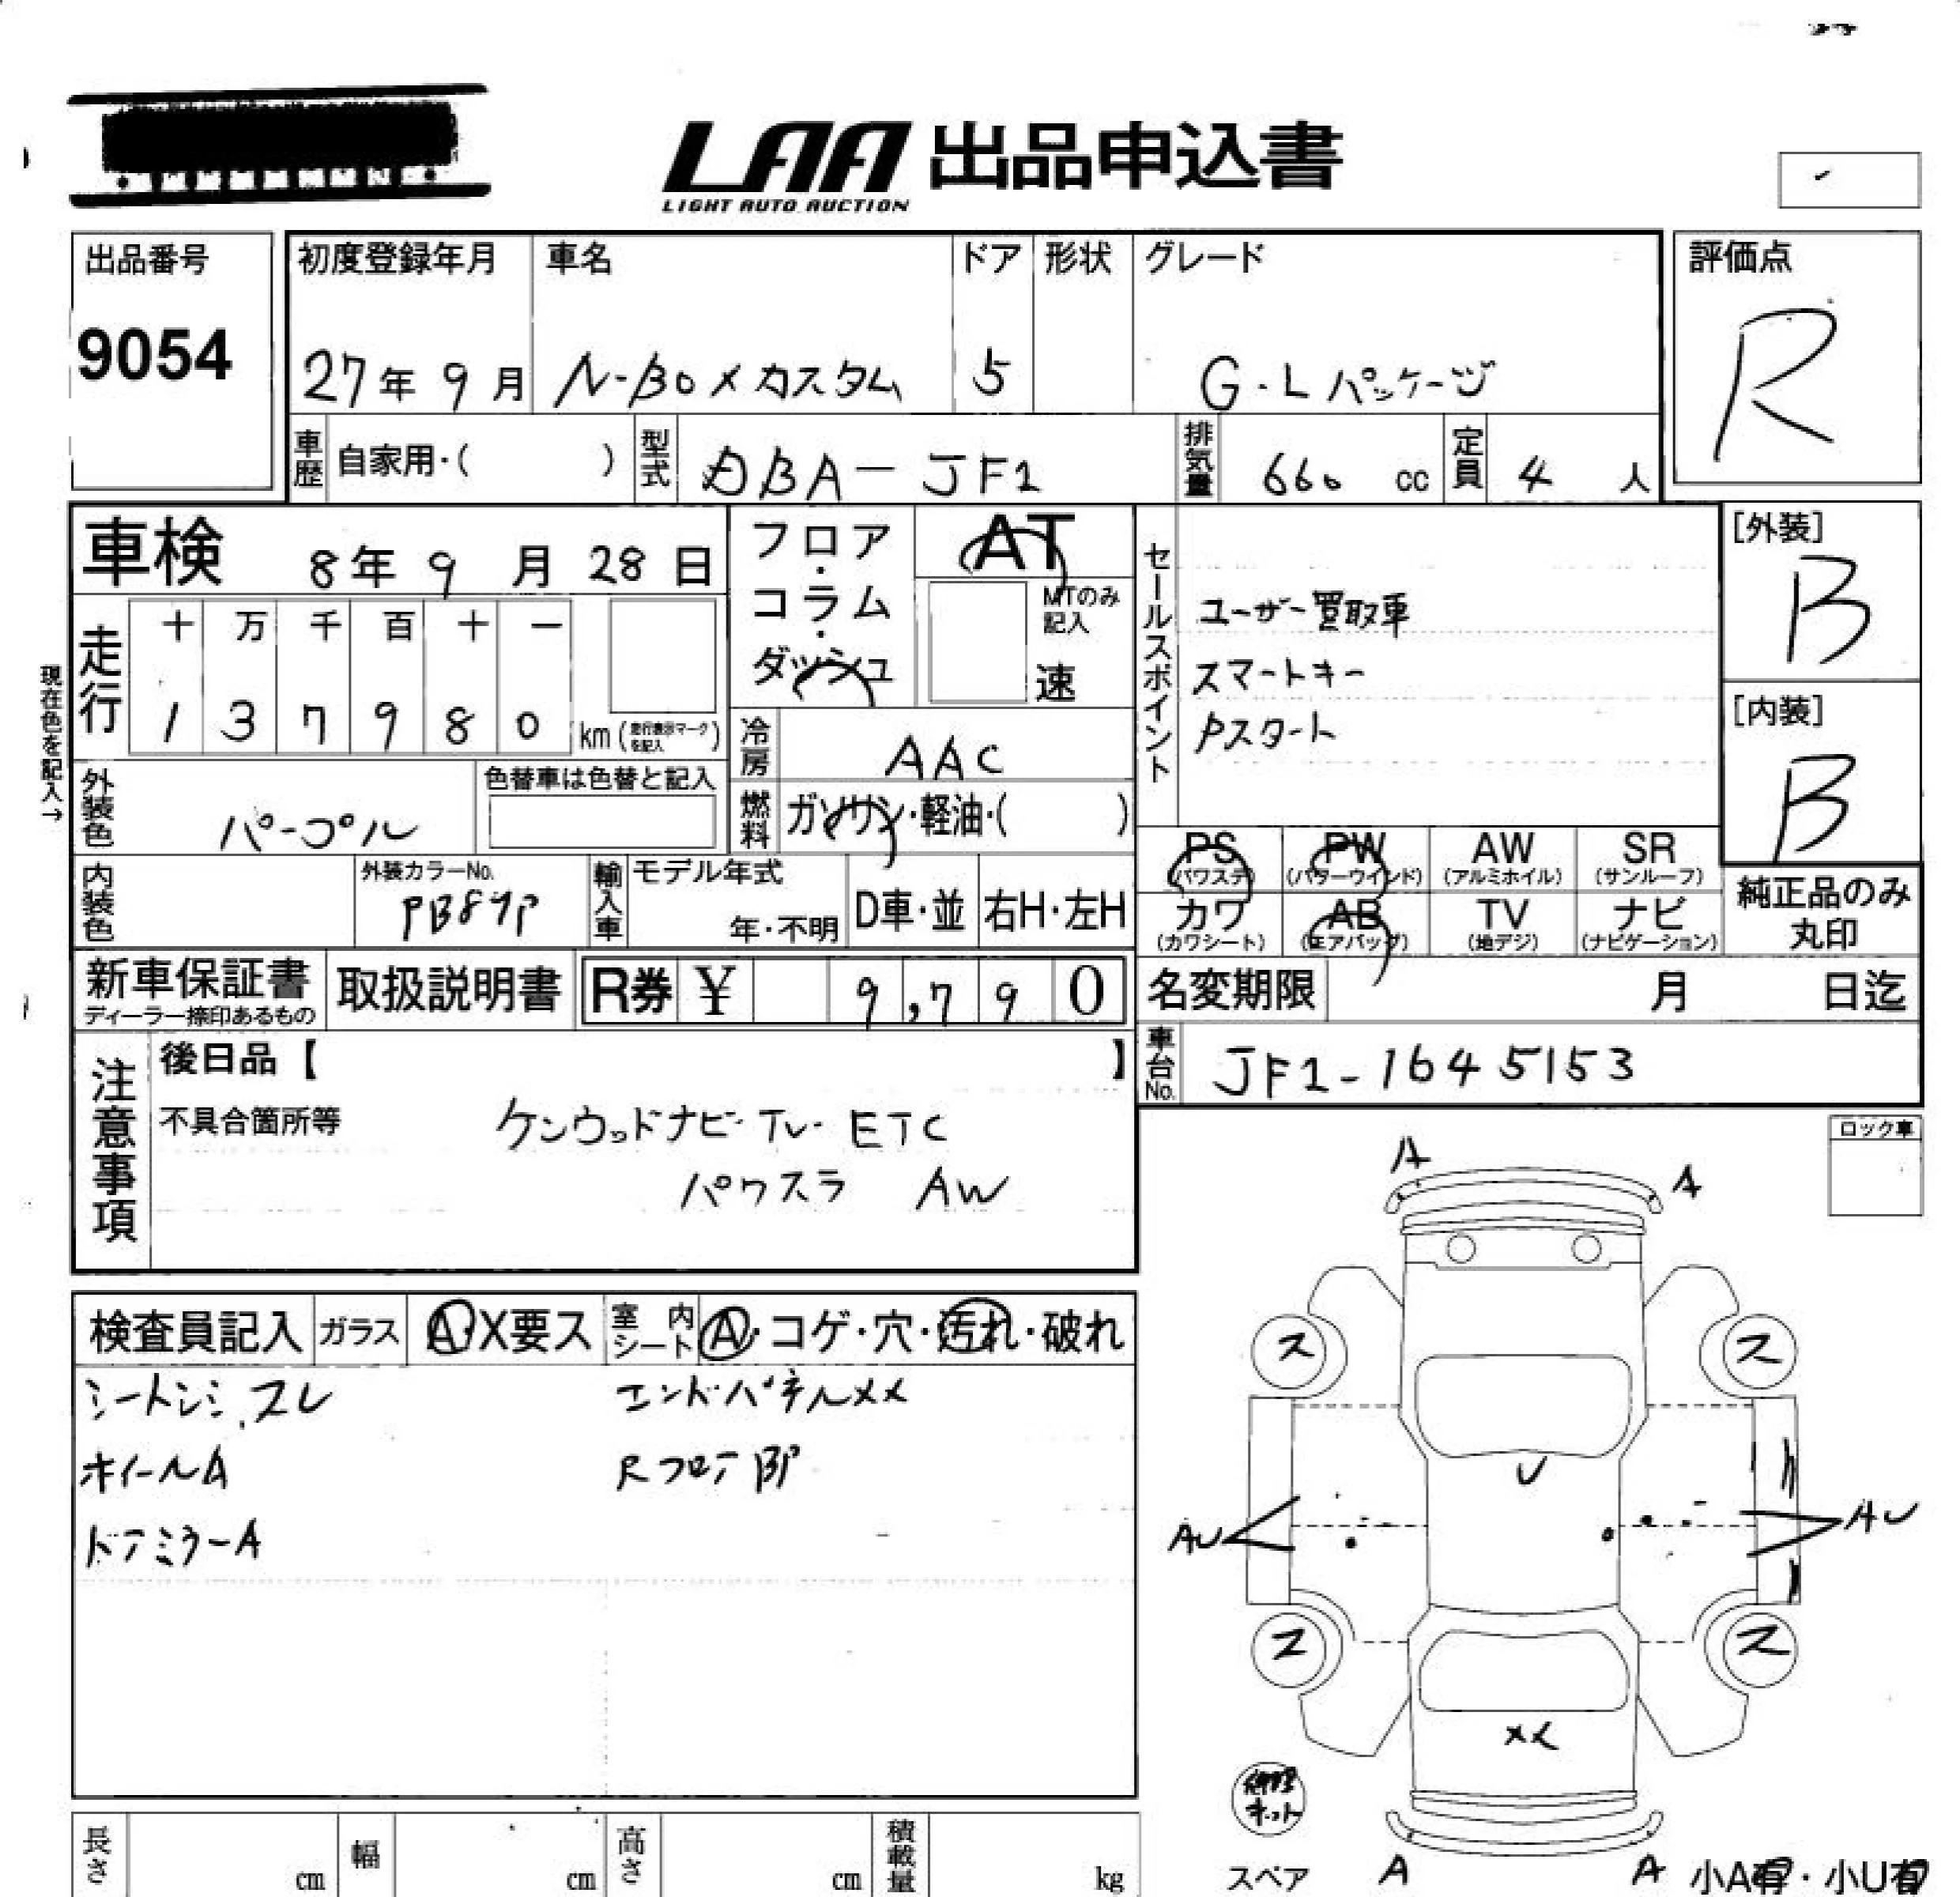 LAA 出品申込書
LIGHT AUTO AUCTION
出品番号
9054
初度登録年月
27年 9月
車名
N-BOXカスタム
ドア
5
形状
グレード
G・Lパッケージ
評価点
R
車歴 自家用・( )
型式 DBA-JF1
排気量 660 cc
定員 4 人
車検 8年 9月 28日
フロア・コラム・ダッシュ
AT
MTのみ記入
速
セールスポイント
ユーザー買取車
スマートキー
Pスタート
[外装]
B
[内装]
B
現在色を記入→
走行
十 万 千 百 十 一
1 3 7 9 8 0 km (走行表示マークを記入)
冷房 AAC
外装色 パープル
色替車は色替と記入
燃料 ガソリン・軽油・( )
PS (パワステ)
PW (パワーウインド)
AW (アルミホイル)
SR (サンルーフ)
カワ (カワシート)
AB (エアバッグ)
TV (地デジ)
ナビ (ナビゲーション)
純正品のみ丸印
内装色
外装カラーNo.
PB87P
輸入車
モデル年式
年・不明
D車・並
右H・左H
新車保証書
ディーラー捺印あるもの
取扱説明書
R券 ¥ 9,790
名変期限 月 日迄
車台No. JF1-1645153
注意事項
後日品【 】
不具合箇所等
ケンウッドナビ・TV・ETC
パワスラ AW
ロック車
検査員記入
ガラス A・X要ス
室内シート A・コゲ・穴・汚れ・破れ
シートシミ、スレ
エンドパネルXX
ホイールA
RフロアBP
ドアミラーA
A
A
ス
ス
U
AU
AU
ス
ス
XX
修理キット
スペア
A
A
小A有・小U有
長さ cm
幅 cm
高さ cm
積載量 kg